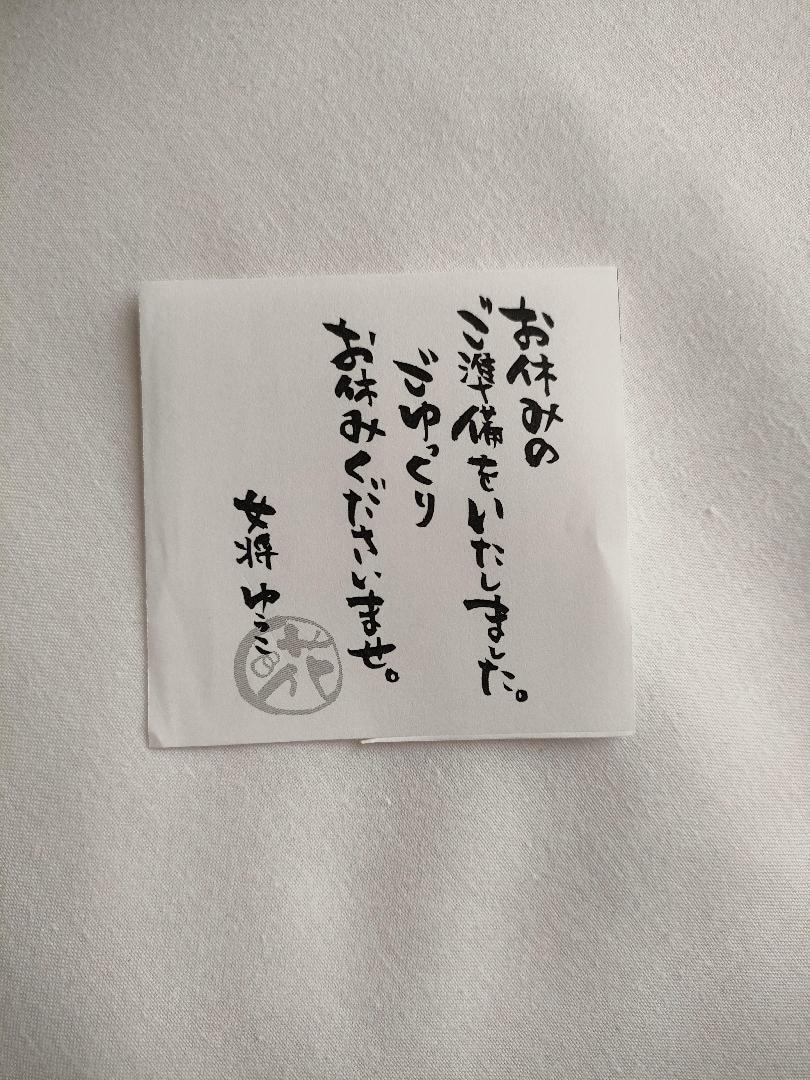 お休みの
ご準備をいたしました。
ごゆっくり
お休みくださいませ。
女将 ゆうこ